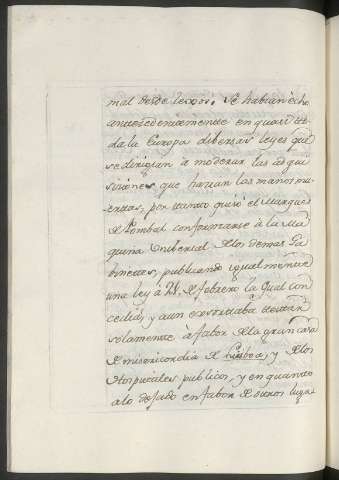 mal desde lexos. Se habian echo
antecedentemente en quasi to-
da la Europa dibersas leyes que
se dirigian à moderar las adqui
siciones que hacian las manos mu-
ertas, por tanto quisò el Marques
de Pombal conformarse à la Ma
quina Unibersal de los demas Ga
binettes, publicando igualmente
una ley à 2 de febrero la qual con
cedia, y aun exortaba testar
solamente à fabor de la gran casa
de misericordia de Lisboa, y de los
Hospitales publicos, y en quanto
a lo dejado en fabor de otros luga-